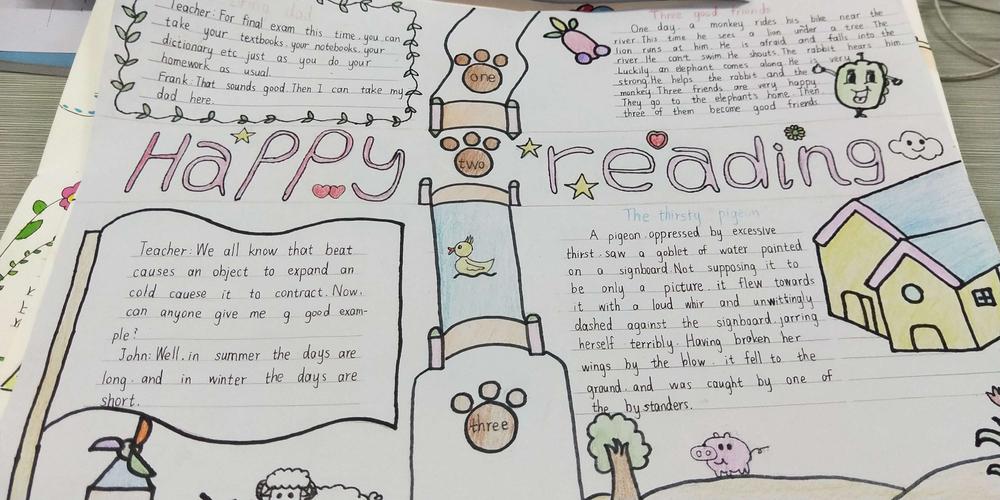 dad
Teacher: For final exam this time. you can
take your textbooks. your notebooks. your
dictionary etc just as you do your
homework as usual.
Frank: That sounds good. Then I can take my
dad here.
one
Three good friends
One day. a monkey rides his bike near the
river. This time he sees a lion under a tree. The
lion runs at him. He is afraid and falls into the
river. He can't swim. He shouts. The rabbit hears him.
Luckily. an elephant comes along. He is very
strong. He helps the rabbit and the
monkey. Three friends are very happy.
They go to the elephant's home. Then.
three of them become good friends
Happy
two
reading
Teacher: We all know that beat
causes an object to expand an
cold cauese it to contract. Now.
can anyone give me g good exam-
ple?
John: Well. in summer the days are
long. and in winter the days are
short.
three
The thirsty pigeon
A pigeon. oppressed by excessive
thirst. saw a goblet of water painted
on a signboard. Not supposing it to
be only a picture. it flew towards
it with a loud whir and unwittingly
dashed against the signboard. jarring
herself terribly. Having broken her
wings by the blow. it fell to the
ground. and was caught by one of
the bystanders.